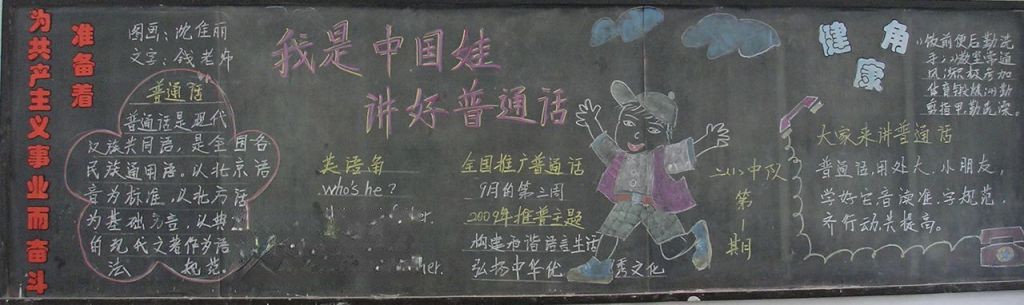 为共产主义事业而奋斗
准备着
图画:沈佳丽
文字:钱老师
普通话
普通话是现代
汉族共同语,是全国各
民族通用语。以北京语
音为标准,以北方话
为基础方言,以典
的现代文著作为语
法 规范。
我是中国娃
讲好普通话
英语角
who's he?
全国推广普通话
9月的第三周
2009年推普主题
构建和谐语言生活
弘扬中华优 秀文化
二(1)中队
第1期
健康角
大家来讲普通话
普通话,用处大,小朋友,
学好它,音读准,字规范,
齐行动共提高。